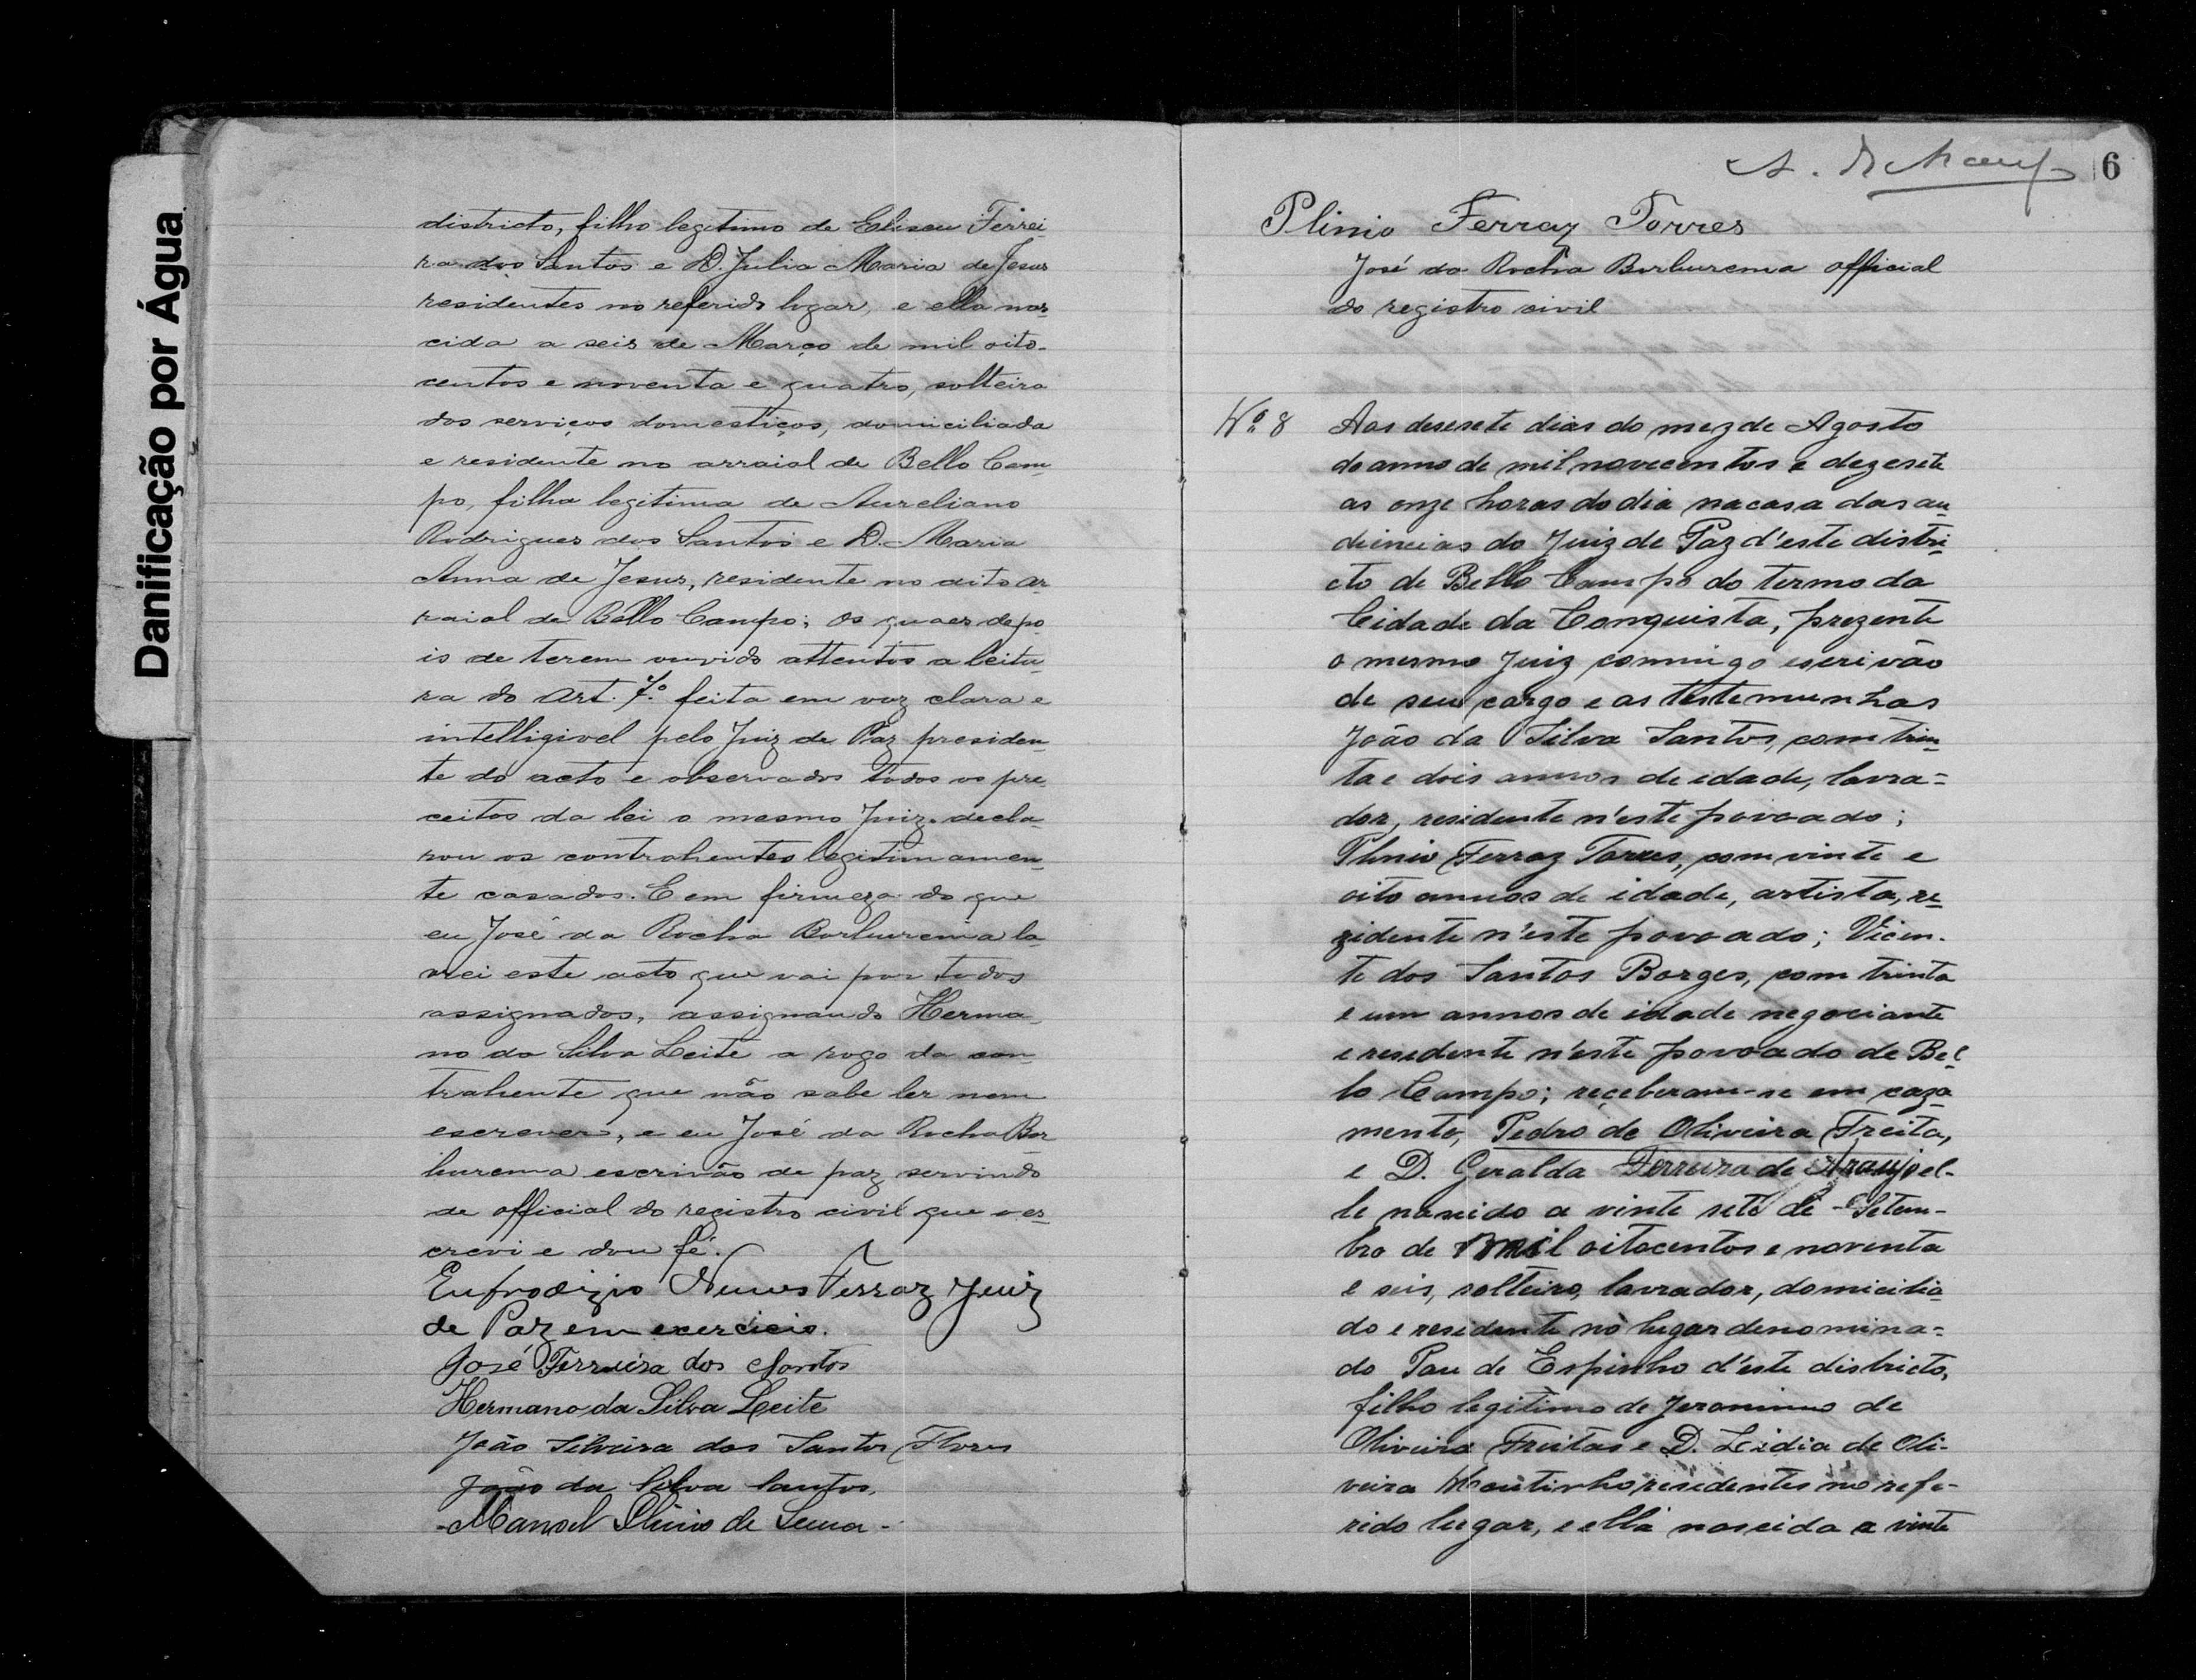 Danificação por Água
districto, filho legitimo de Eliseu Ferrei-
ra dos Santos e D. Julia Maria de Jesus
residentes no referido logar, e ella nas-
cida a seis de Março de mil oito-
centos e noventa e quatro, solteira
dos serviços domesticos, domiciliada
e residente no arraial de Bello Cam-
po, filha legitima de Aureliano
Rodrigues dos Santos e D. Maria
Anna de Jesus, residente no dito ar-
raial de Bello Campo; os quaes depo-
is de terem ouvido attentos a leitu-
ra do art. 7º feita em voz clara e
intelligivel pelo Juiz de Paz presiden-
te do acto e observados todos os pre-
ceitos da lei o mesmo Juiz decla-
rou os contrahentes legitimamen-
te casados. E em firmeza do que
eu José da Rocha Borburema la-
vrei este acto que vai por todos
assignados, assignando Herma-
no da Silva Leite a rogo da con-
trahente que não sabe ler nem
escrever, e eu José da Rocha Bor-
burema escrivão de paz servindo
de official do registro civil que o es-
crevi e dou fé.
Eufrodizio Nunes Ferraz Juiz
de Paz em exercicio.
José Ferreira dos Santos
Hermano da Silva Leite
João Silveira dos Santos Flores
João da Silva Santos.
Manoel Plinio de
6
Plinio Ferraz Torres
José da Rocha Borburema official
do registro civil
Nº 8 Aos desesete dias do mez de Agosto
do anno de mil novecentos e dezesete
as onze horas do dia na casa das au-
diencias do Juiz de Paz d'este distri-
cto de Bello Campo do termo da
Cidade da Conquista, prezente
o mesmo Juiz commigo escrivão
de seu cargo e as testemunhas
João da Silva Santos, com trin-
ta e dois annos de idade, lavra=
dor, residente n'este povoado;
Plinio Ferraz Torres, com vinte e
oito annos de idade, artista, re-
zidente n'este povoado; Vicen-
te dos Santos Borges, com trinta
e um annos de idade negociante
e residente n'este povoado de Bel-
lo Campo; receberam-se em caza-
mento, Pedro de Oliveira Freita,
e D. Geralda Ferreira de Araujo el-
le nascido a vinte sete de Setem-
bro de mil oitocentos e noventa
e seis, solteiro, lavrador, domicilia-
do e residente no lugar denomina=
do Pau de Espinho d'este districto,
filho legitimo de Jeronimo de
Oliveira Freitas e D. Leidia de Oli-
veira Moutinho residentes no refe-
rido lugar, e ella nascida a vinte